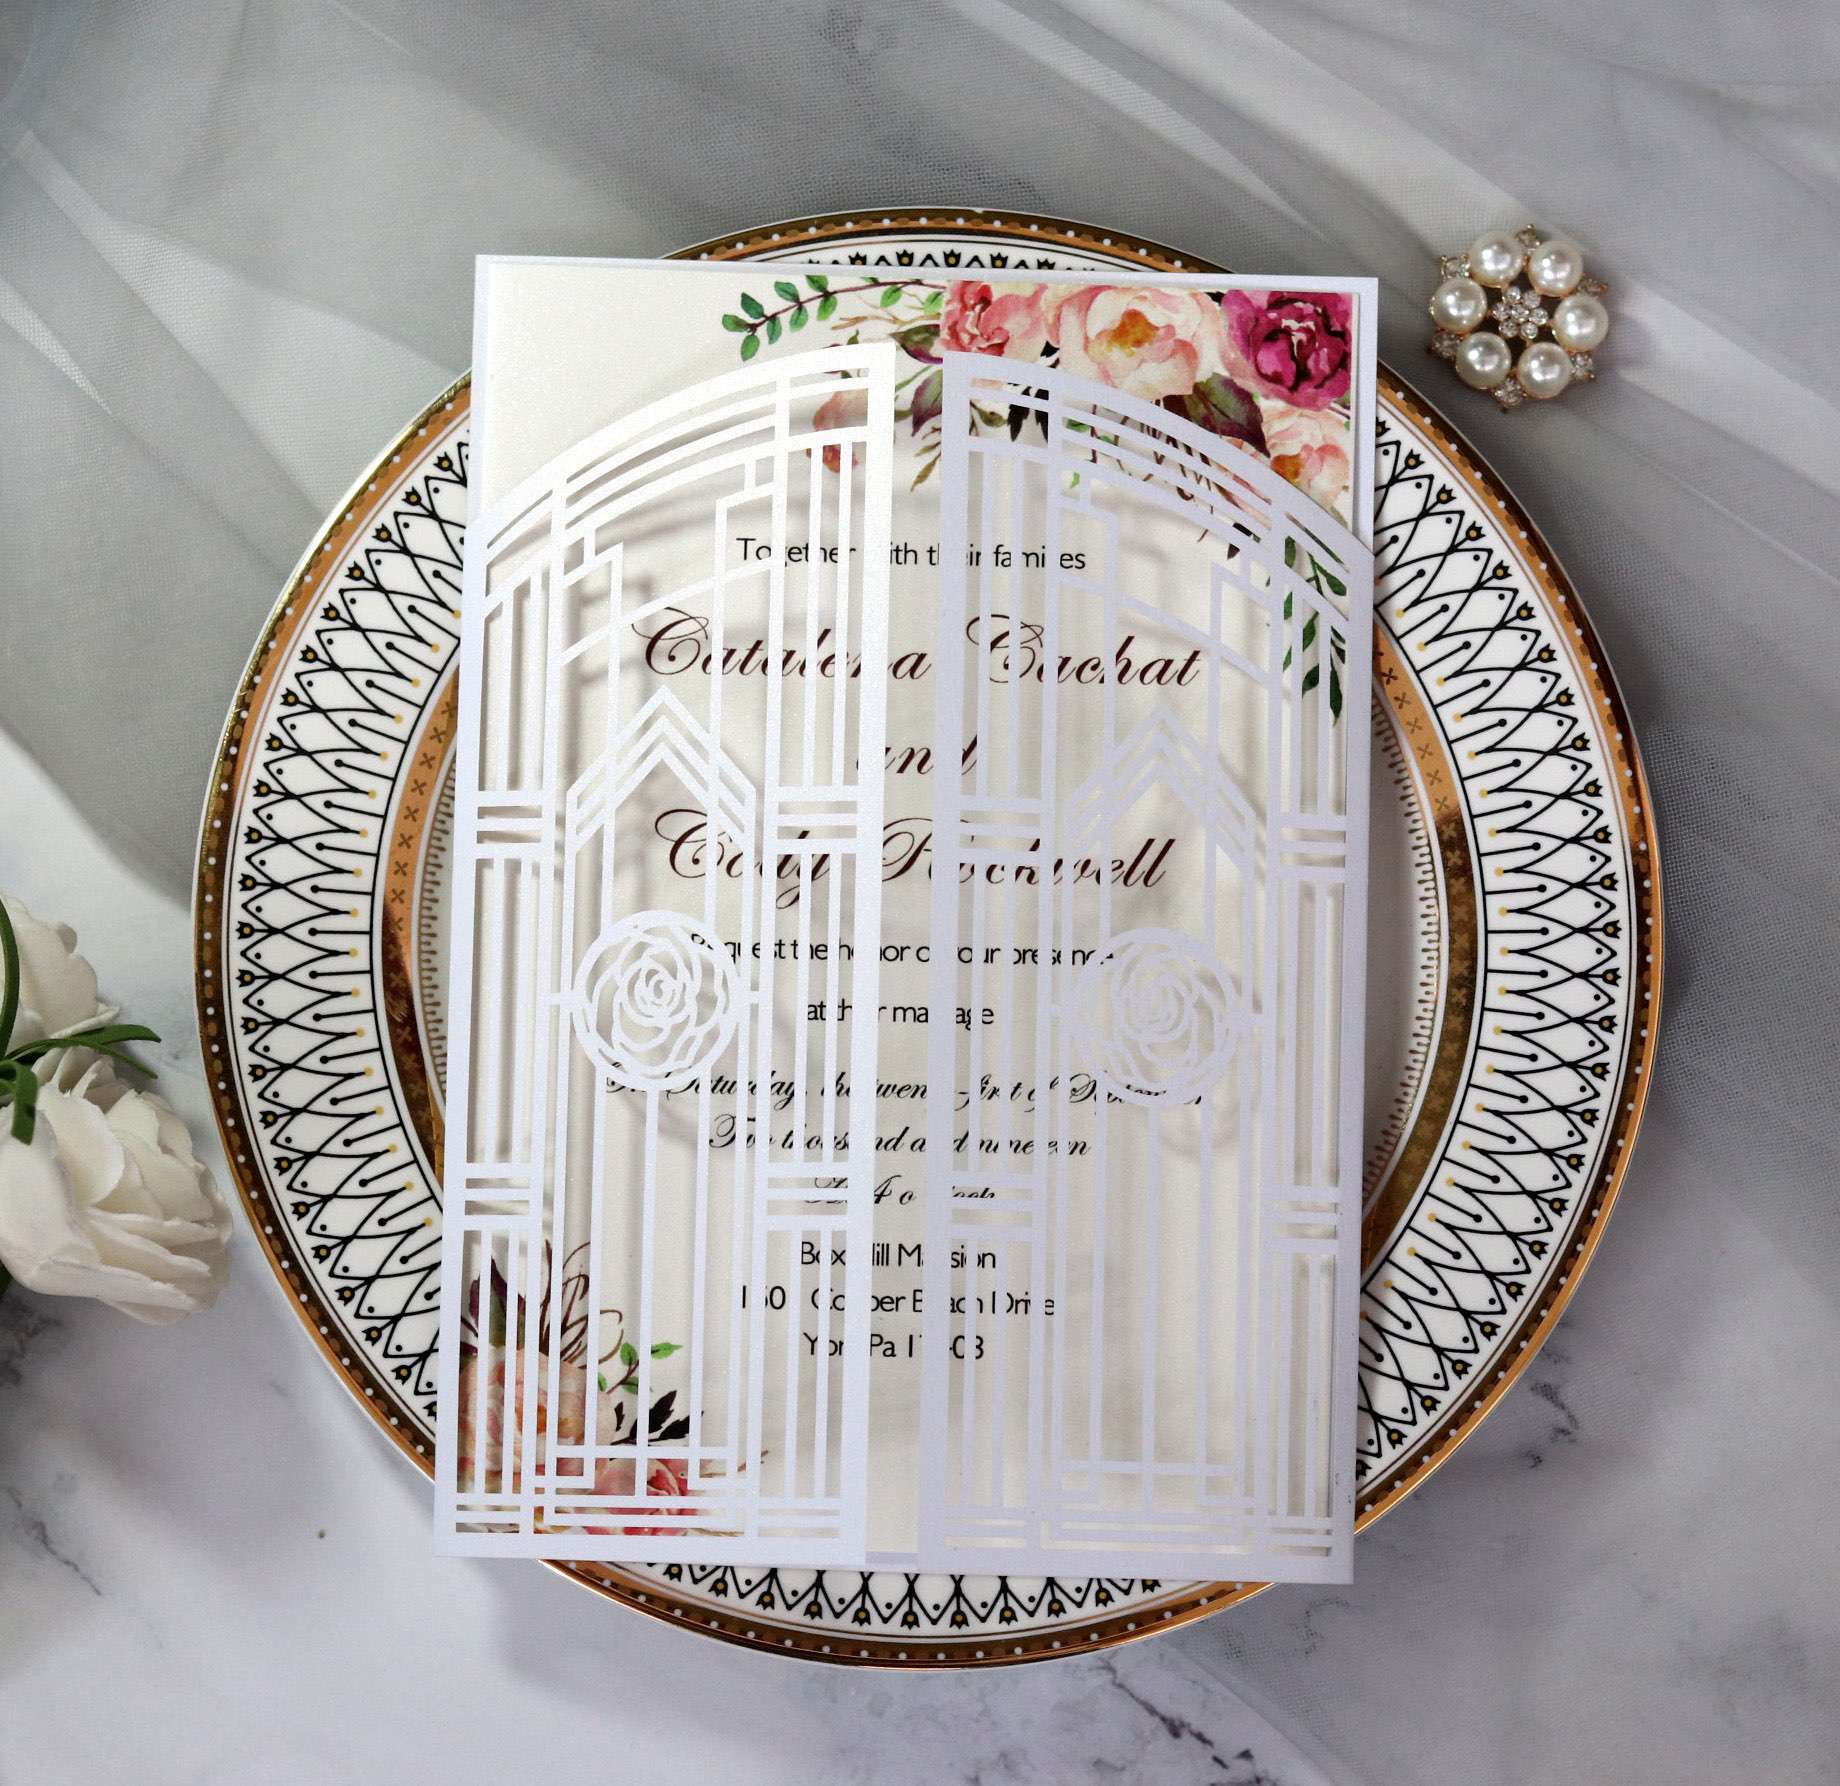 Together with their families
Catalena Cachat
and
Cody Rockwell
Request the honor of your presence
at their marriage
On Saturday, the twenty-first of September
Two thousand and nineteen
At 4 o'clock
Box Hill Mansion
Copper Beach Drive
York Pa